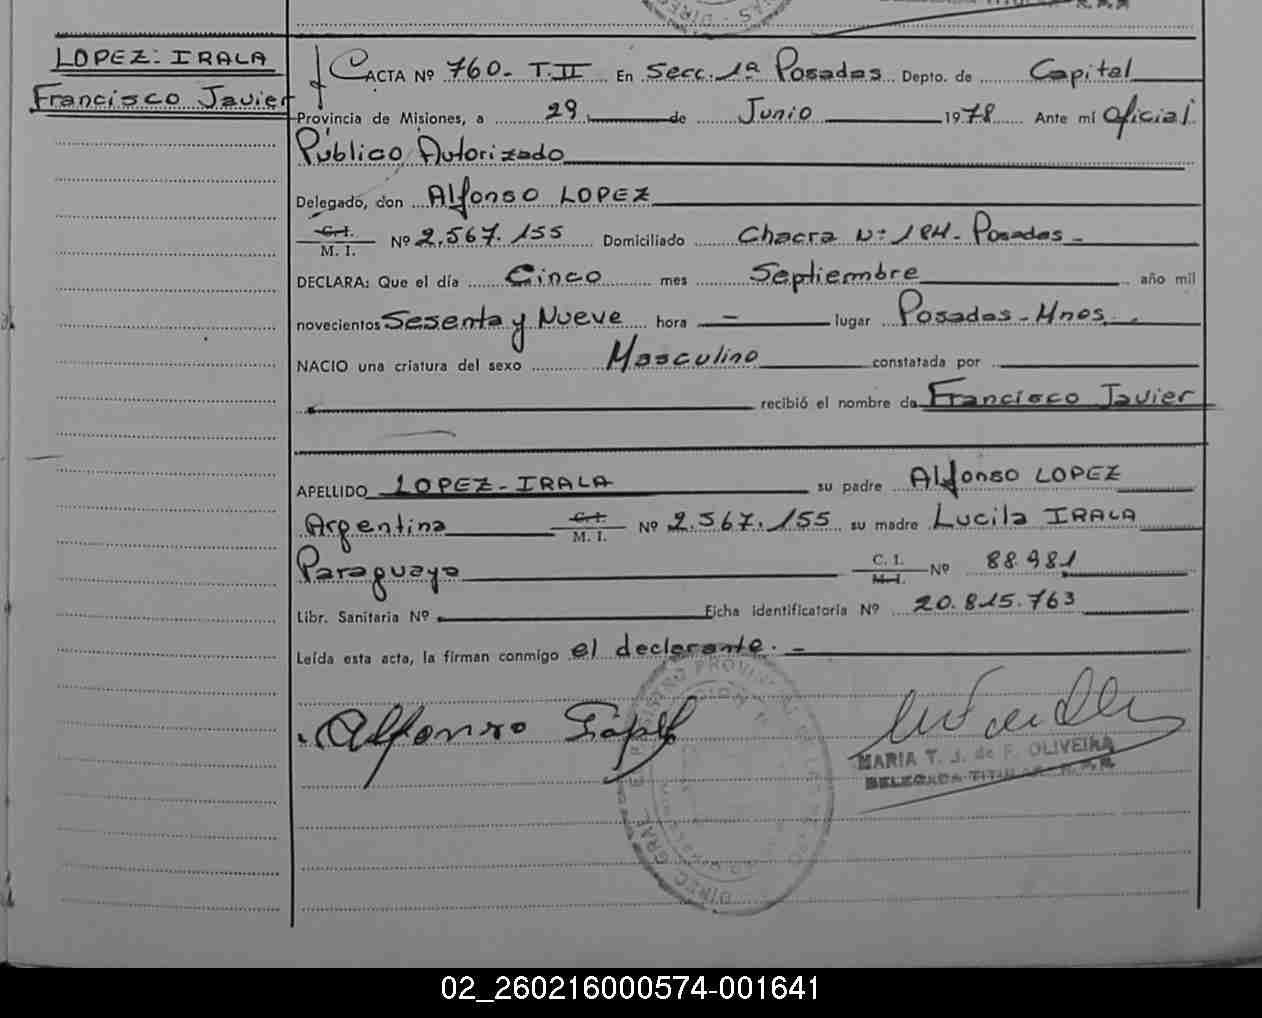 LOPEZ-IRALA
Francisco Javier
ACTA Nº 760- T.II En Secc. 1ª Posadas Depto. de Capital
Provincia de Misiones, a 29 de Junio 1978 Ante mí Oficial
Público Autorizado
Delegado, don Alfonso LOPEZ
C.I.
M. I. Nº 2.567.155 Domiciliado Chacra Nº 184- Posadas -
DECLARA: Que el día Cinco mes Septiembre año mil
novecientos Sesenta y Nueve hora - lugar Posadas - Mnes.
NACIO una criatura del sexo Masculino constatada por
recibió el nombre de Francisco Javier
APELLIDO LOPEZ-IRALA su padre Alfonso LOPEZ
Argentina C.I. M. I. Nº 2.567.155 su madre Lucila IRALA
Paraguaya C. I. M.I. Nº 88.981
Libr. Sanitaria Nº Ficha identificatoria Nº 20.815.763
Leída esta acta, la firman conmigo el declarante. -
Alfonso López
MARIA T. J. de F. OLIVEIRA
DELEGADA TITULAR
02_260216000574-001641